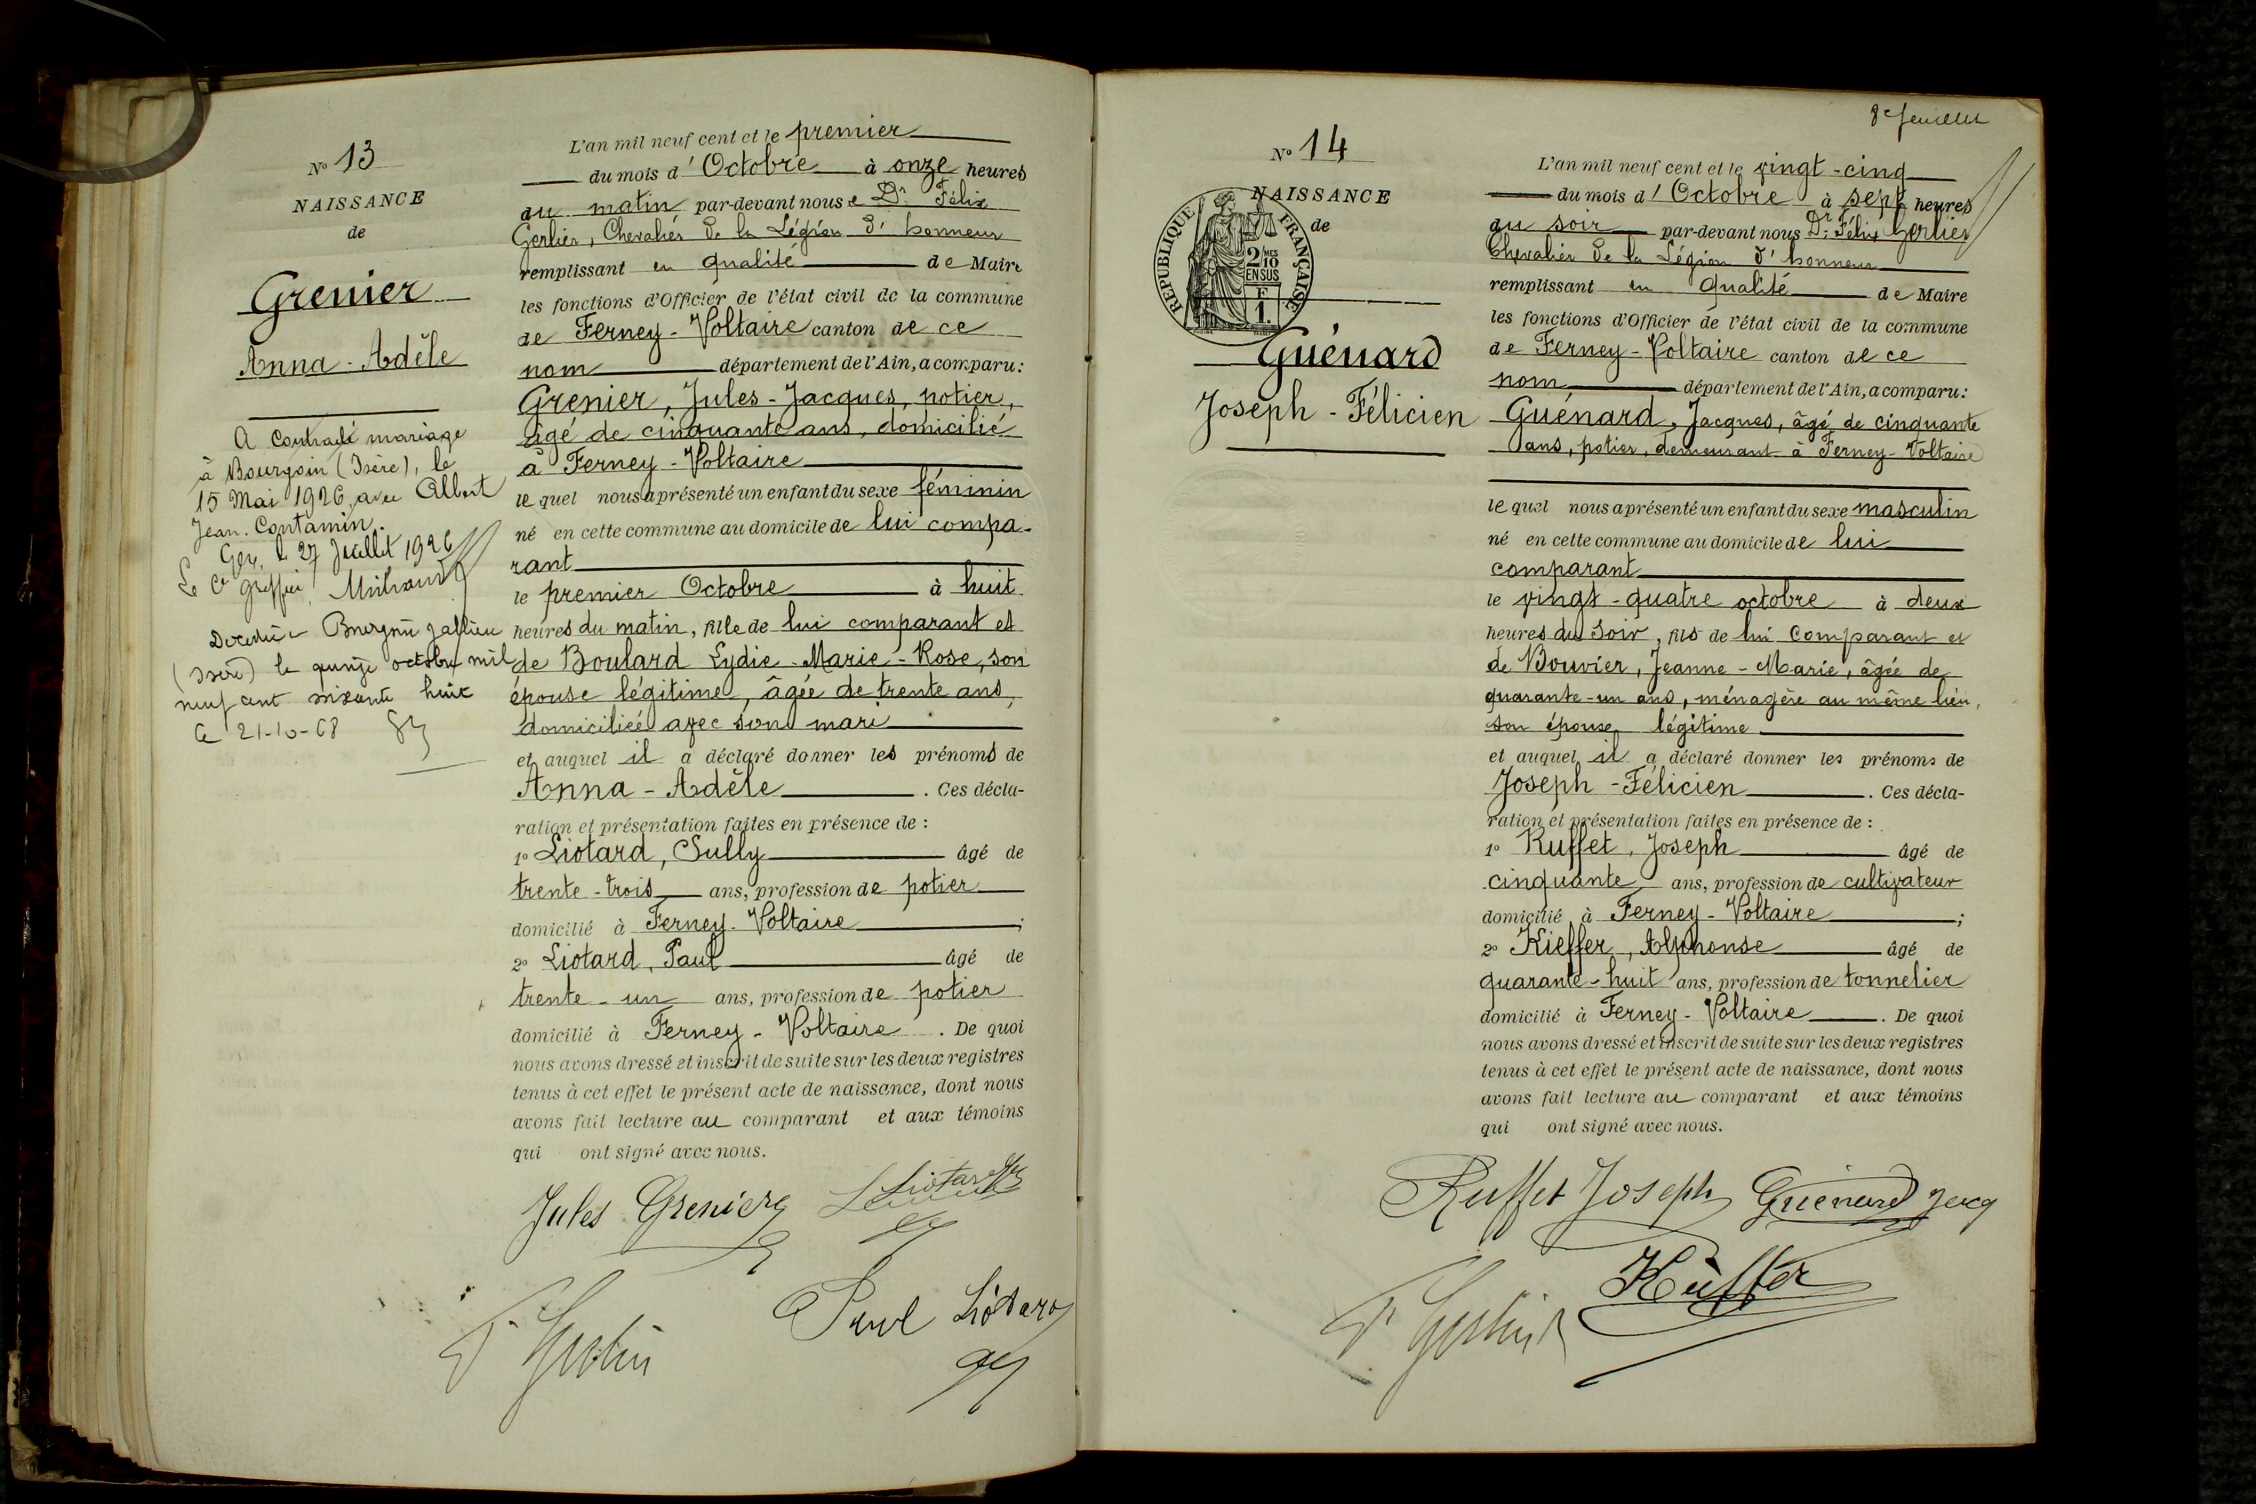 N° 13
NAISSANCE
de
Grenier
Anna-Adèle
A contracté mariage
à Bourgoin (Isère), le
15 Mai 1926, avec Albert
Jean Contamin.
Gex, le 27 Juillet 1926
Le Cs greffier,
Décédée à Bourgoin Jallieu
(Isère) le quinze octobre mil
neuf cent soixante huit
Le 21-10-68
L'an mil neuf cent et le premier
du mois d'Octobre à onze heures
du matin par-devant nous Dr Félix
Gerlier, Chevalier de la Légion d'honneur
remplissant en qualité de Maire
les fonctions d'Officier de l'état civil de la commune
de Ferney-Voltaire canton de ce
nom département de l'Ain, a comparu:
Grenier, Jules-Jacques, potier,
âgé de cinquante ans, domicilié
à Ferney-Voltaire
le quel nous a présenté un enfant du sexe féminin
né en cette commune au domicile de lui compa-
rant
le premier Octobre à huit
heures du matin, fille de lui comparant et
de Boulard Lydie-Marie-Rose, son
épouse légitime, âgée de trente ans,
domiciliée avec son mari
et auquel il a déclaré donner les prénoms de
Anna-Adèle. Ces décla-
ration et présentation faites en présence de:
1° Liotard, Sully âgé de
trente-trois ans, profession de potier
domicilié à Ferney-Voltaire;
2° Liotard, Paul âgé de
trente-un ans, profession de potier
domicilié à Ferney-Voltaire. De quoi
nous avons dressé et inscrit de suite sur les deux registres
tenus à cet effet le présent acte de naissance, dont nous
avons fait lecture au comparant et aux témoins
qui ont signé avec nous.
Jules Grenier Liotard
Paul Liotard
Dr Gerlier
8e feuillet
N° 14
NAISSANCE
de
REPUBLIQUE FRANÇAISE
2/10 MES
EN SUS
F
1.
Guénard
Joseph-Félicien
L'an mil neuf cent et le vingt-cinq
du mois d'Octobre à sept heures
du soir par-devant nous Dr Félix Gerlier
Chevalier de la Légion d'honneur
remplissant en qualité de Maire
les fonctions d'Officier de l'état civil de la commune
de Ferney-Voltaire canton de ce
nom département de l'Ain, a comparu:
Guénard, Jacques, âgé de cinquante
ans, potier, demeurant à Ferney-Voltaire
le quel nous a présenté un enfant du sexe masculin
né en cette commune au domicile de lui
comparant
le vingt-quatre octobre à deux
heures du soir, fils de lui comparant et
de Bouvier, Jeanne-Marie, âgée de
quarante-un ans, ménagère au même lieu,
son épouse légitime
et auquel il a déclaré donner les prénoms de
Joseph-Félicien. Ces décla-
ration et présentation faites en présence de:
1° Ruffet, Joseph âgé de
cinquante ans, profession de cultivateur
domicilié à Ferney-Voltaire;
2° Kieffer, Alphonse âgé de
quarante-huit ans, profession de tonnelier
domicilié à Ferney-Voltaire. De quoi
nous avons dressé et inscrit de suite sur les deux registres
tenus à cet effet le présent acte de naissance, dont nous
avons fait lecture au comparant et aux témoins
qui ont signé avec nous.
Ruffet Joseph Guénard Jacq
Kieffer
Dr Gerlier